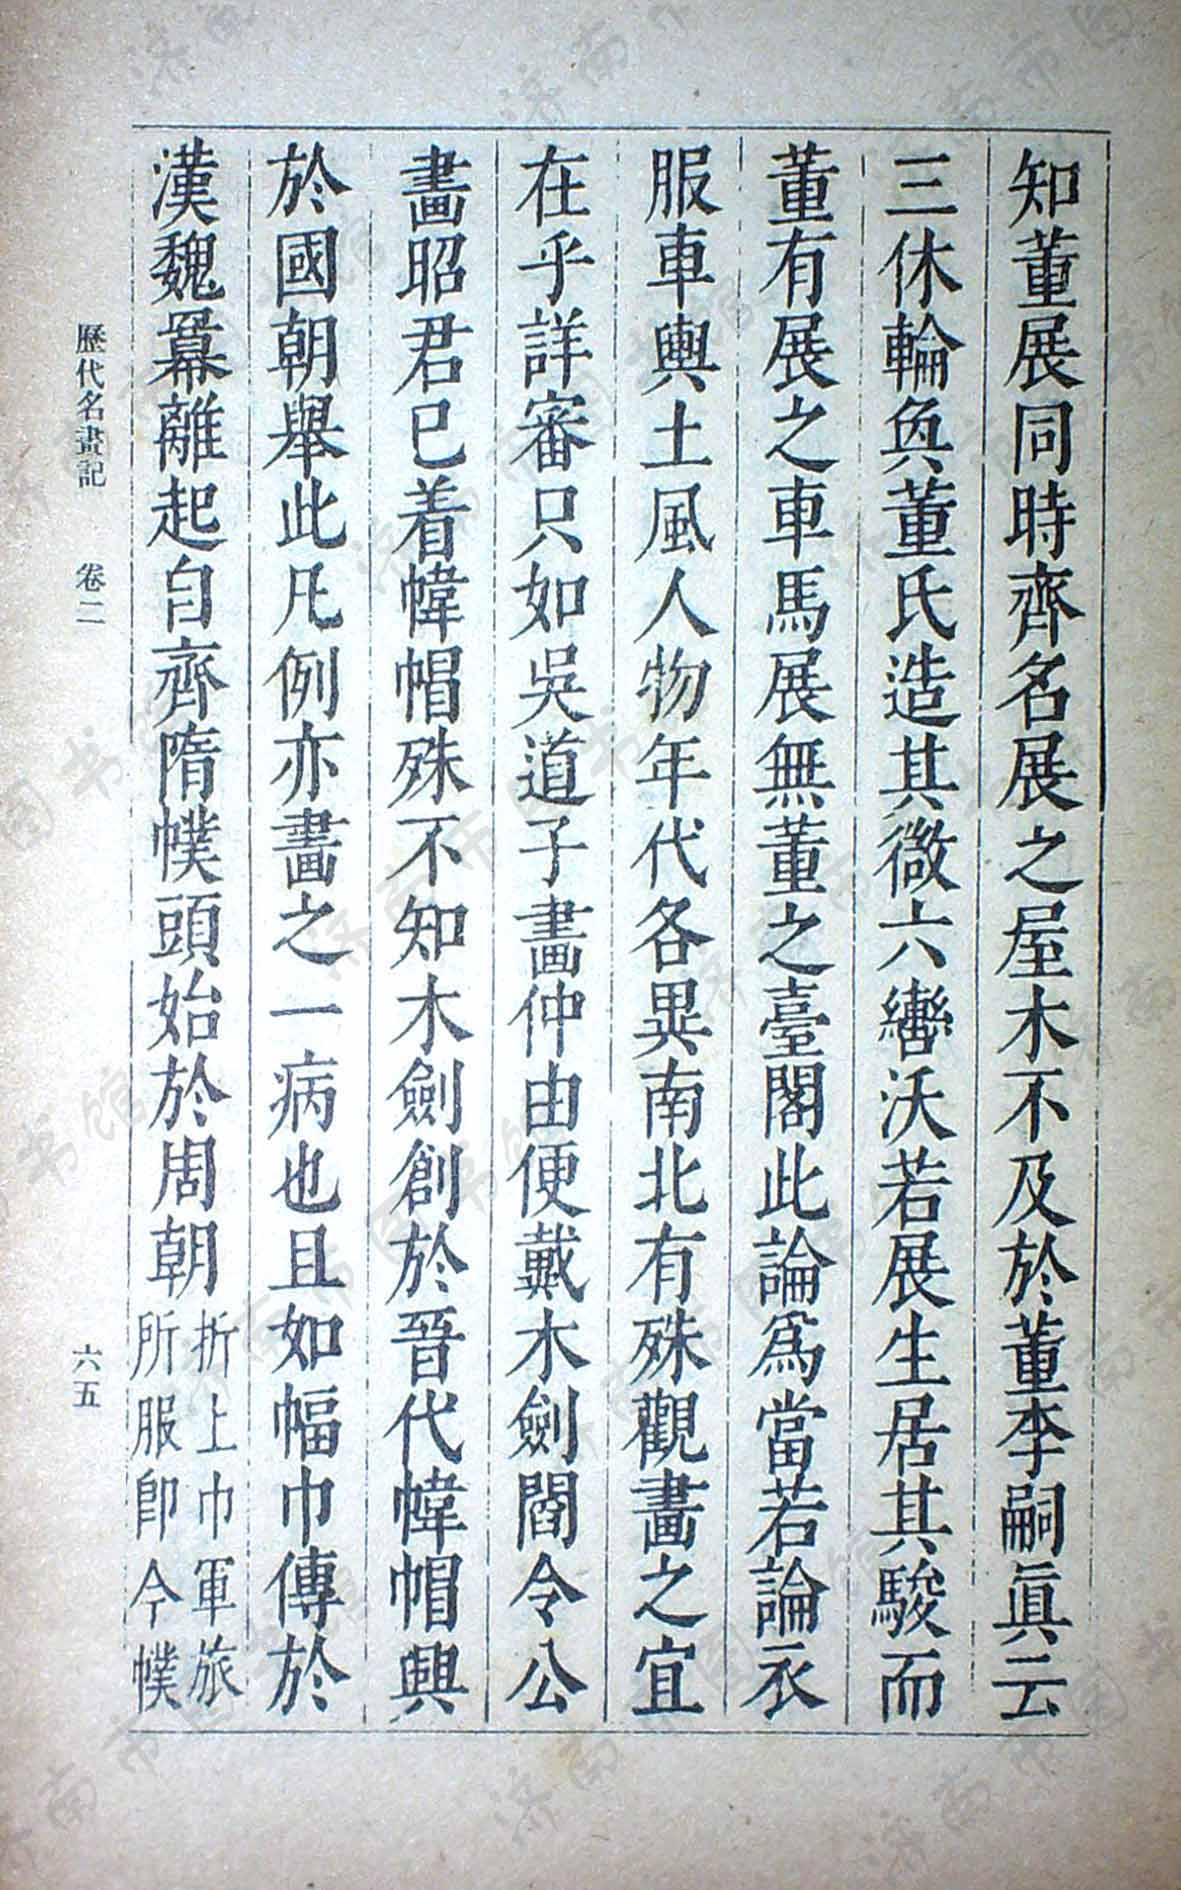 知董展同時齊名展之屋木不及於董李嗣眞云
三休輪奐董氏造其微六轡沃若展生居其駿而
董有展之車馬展無董之臺閣此論爲當若論衣
服車輿土風人物年代各異南北有殊觀畫之宜
在乎詳審只如吳道子畫仲由便戴木劍閻令公
畫昭君已着幃帽殊不知木劍創於晉代幃帽興
於國朝舉此凡例亦畫之一病也且如幅巾傳於
漢魏羃離起自齊隋幞頭始於周朝
折上巾軍旅
所服卽今幞
歷代名畫記 卷二 六五
济南市图书馆